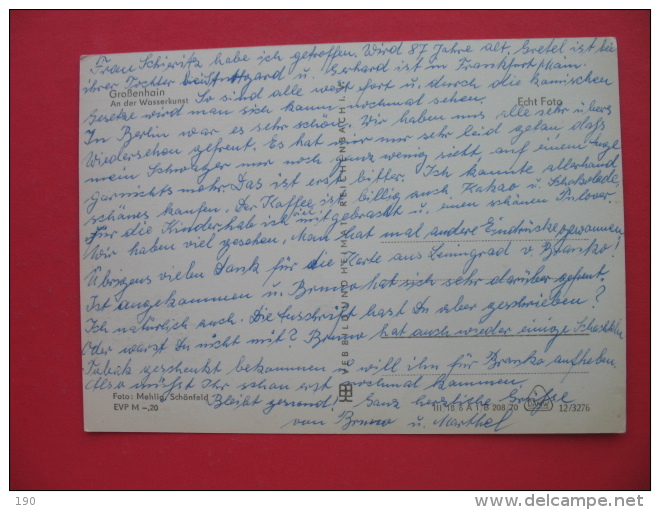 Frau Schieritz habe ich getroffen. Wird 87 Jahre alt, Gretel ist bei
ihrer Tochter bei Stuttgard u. Gerhard ist in Frankfurt Main.
Großenhain
An der Wasserkunst
Echt Foto
So sind alle weit fort u. durch die komischen
Gesetze wird man sich kaum nochmal sehen.
In Berlin war es sehr schön. Wir haben uns alle sehr übers
Wiedersehen gefreut. Es hat mir nur sehr leid getan daß
mein Schwager nur noch ganz wenig sieht, auf einem Auge
garnichts mehr Das ist erst bitter. Ich konnte allerhand
schönes kaufen. Der Kaffee ist billig auch Kakao u. Schokolade
Für die Kinder hab ich viel mitgebracht u. einen schönen Pulover.
Wir haben viel gesehen, Man hat mal andere Eindrücke gewonnen
Übrigens vielen Dank für die Karte aus Leningrad v. Branko!
Ist angekommen u. Bruno hat sich sehr darüber gefreut.
Ich natürlich auch. Die Anschrift hast Du aber geschrieben?
Oder warst Du nicht mit? Bruno hat auch wieder einige Schachteln
Tabak geschenkt bekommen u. will ihm für Branko aufheben
Also müßt Ihr schon erst nochmal kommen.
Bleibt gesund! Ganz herzliche Grüße
von Bruno u. Marthel
Foto: Mehlig, Schönfeld
EVP M –,20
VEB BILD UND HEIMAT REICHENBACH I. V.
III 18 8 A 1 B 208/70
12/3276
190
delcampe.net